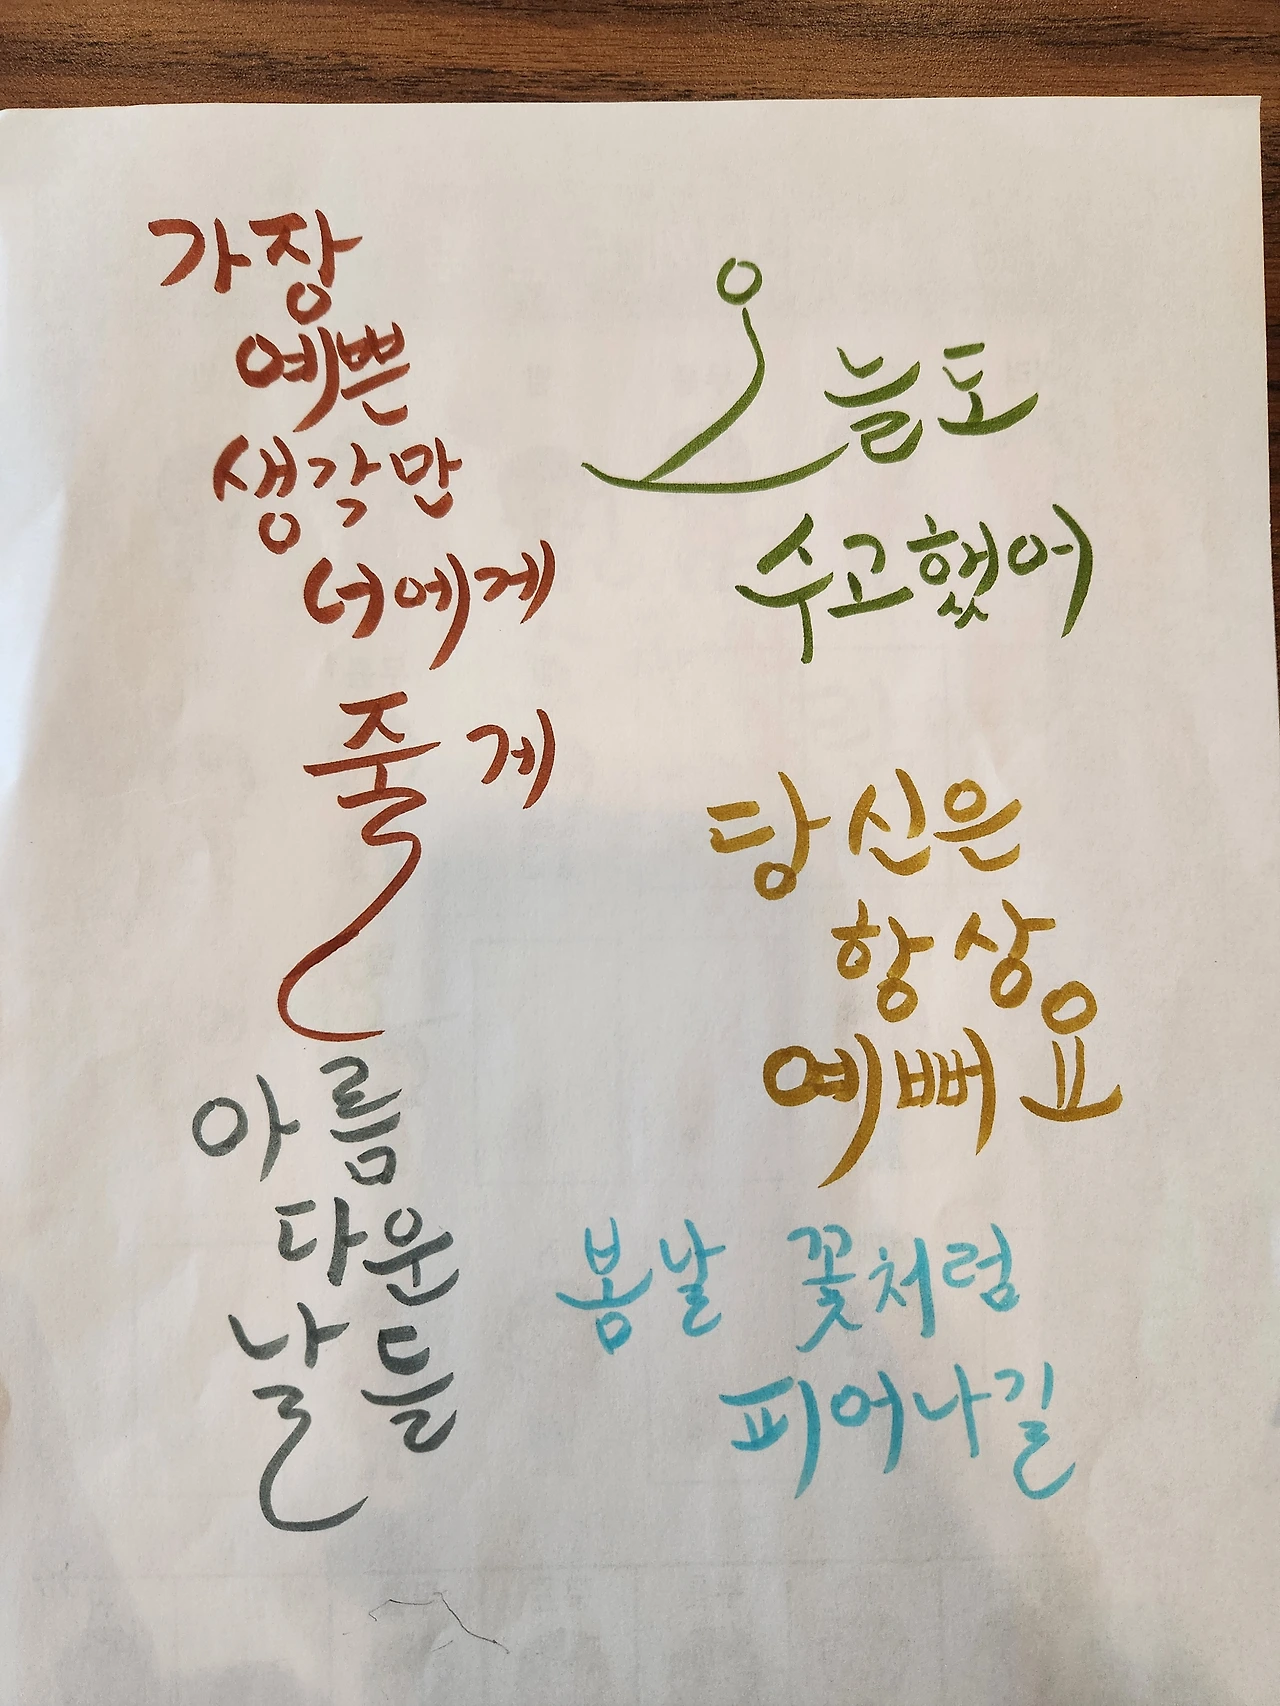 가장
예쁜
생각만
너에게
줄게
오늘도
수고했어
당신은
항상
예뻐요
아름
다운
날들
봄날 꽃처럼
피어나길